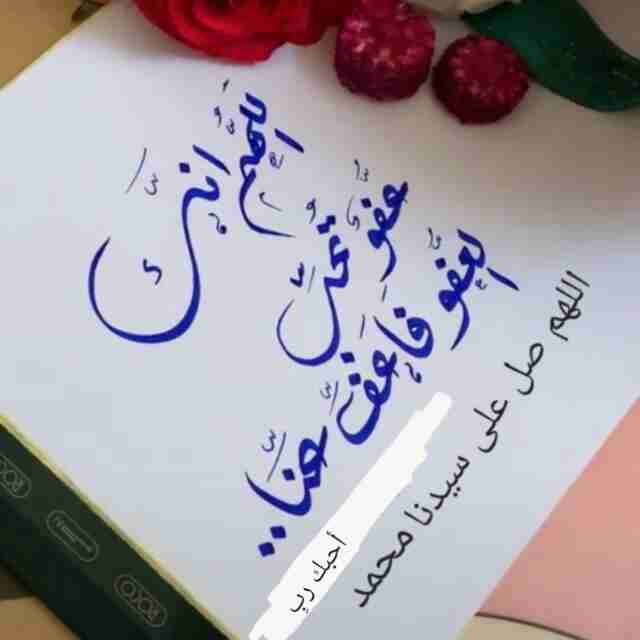 اللهم إنك
عفو تحب
العفو فاعف عنا..
اللهم صل على سيدنا محمد
أحبك رب